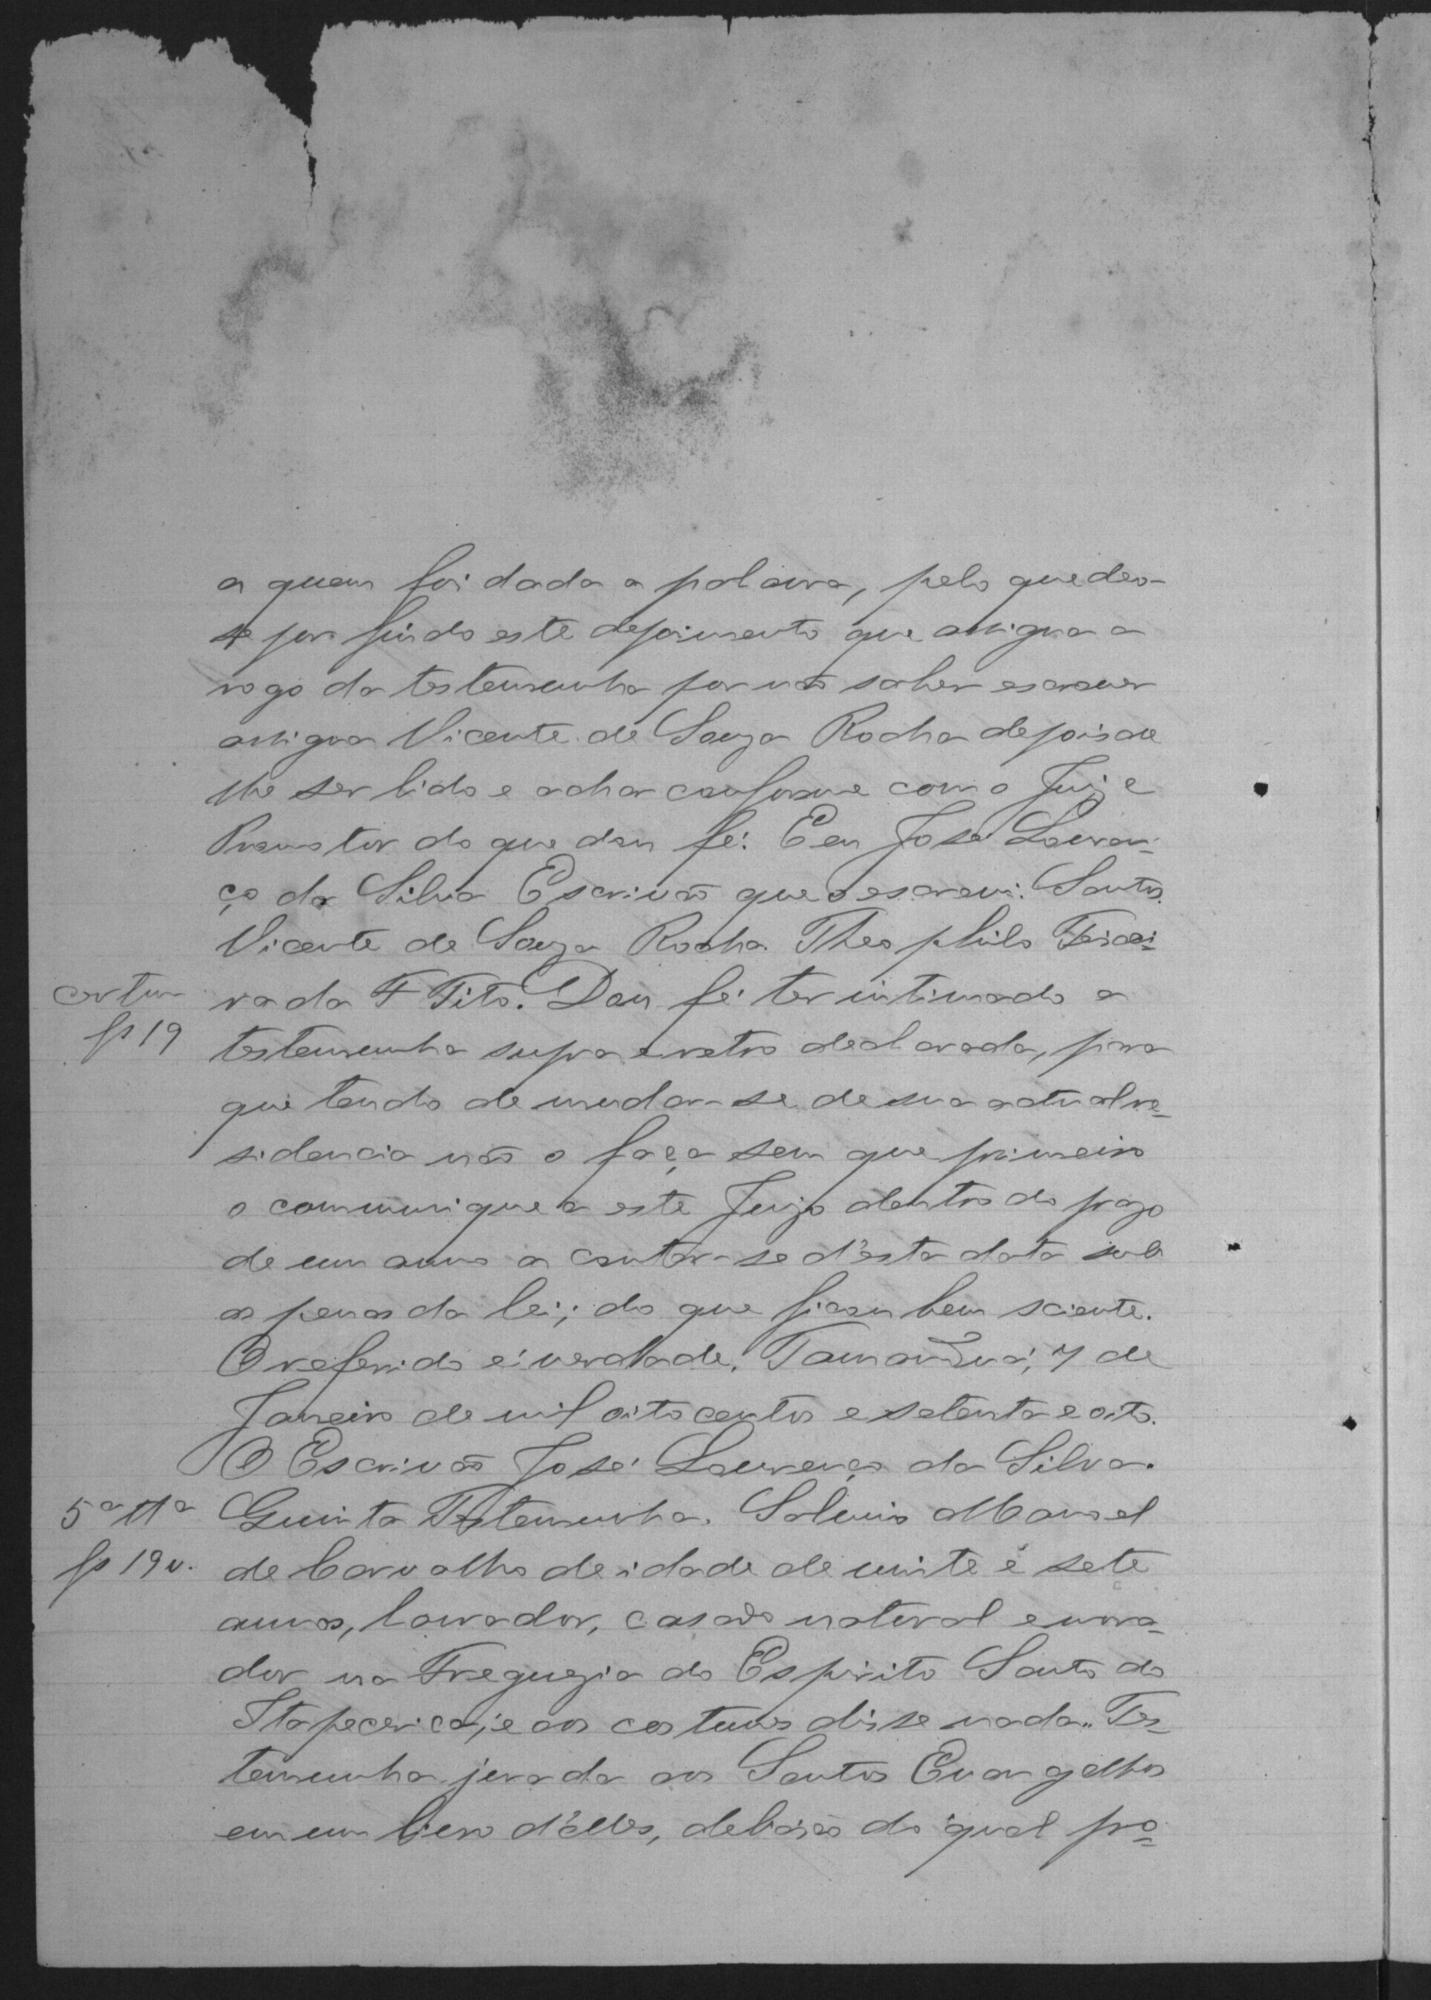 a quem foi dada a palavra, pelo que deo-
se por findo este depoimento que assigna a
rogo da testemunha por não saber escrever
assigna Vicente de Souza Rocha depois de
lhe ser lido e achar conforme com o Juiz e
Promotor do que dou fé. E eu José Louren-
ço da Silva Escrivão que o escrevi. Santos.
Vicente de Souza Rocha. Theophilo Ferrei-
certam
fs 19
ra da F Tito. Dou fé ter intimado a
testemunha supra e retro declarada, para
que tendo de mudar-se de sua actual re-
sidencia não o faça sem que primeiro
o communique a este Juizo dentro do prazo
de um anno a contar-se d'esta data sob
as penas da lei; do que ficou bem sciente.
O referido é verdade. 7 de
Janeiro de mil oitocentos e setenta e oito.
O Escrivão José Lourenço da Silva.
5ª Ttª
fs 19 v.
Quinta Testemunha. Manoel
de Carvalho de idade de vinte e sete
annos, lavrador, casado natural e mora-
dor na Freguezia do Espirito Santo da
Itapecerica; e aos costumes disse nada. Tes-
temunha jurada aos Santos Evangelhos
em um livro d'elles, debaixo do qual pro-